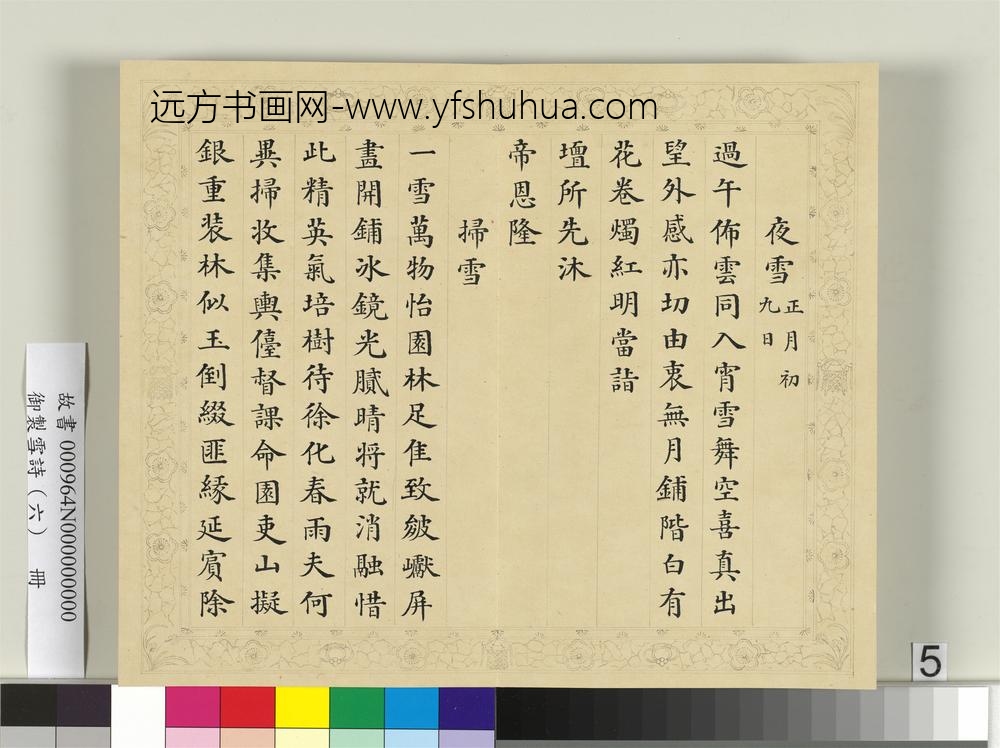 远方书画网-www.yfshuhua.com
夜雪正月初九日
過午佈雲同入宵雪舞空喜真出
望外感亦切由衷無月鋪階白有
花卷燭紅明當詣
壇所先沐
帝恩隆
掃雪
一雪萬物怡園林足隹致皴巘屏
畵開鋪冰鏡光贜晴將就消融惜
此精英氣培樹待徐化春雨夫何
異掃收集輿儓督課命園吏山擬
銀重装林似玉倒綴匪緣延賓除
故書 000964N000000000
御製雪詩（六） 冊
5